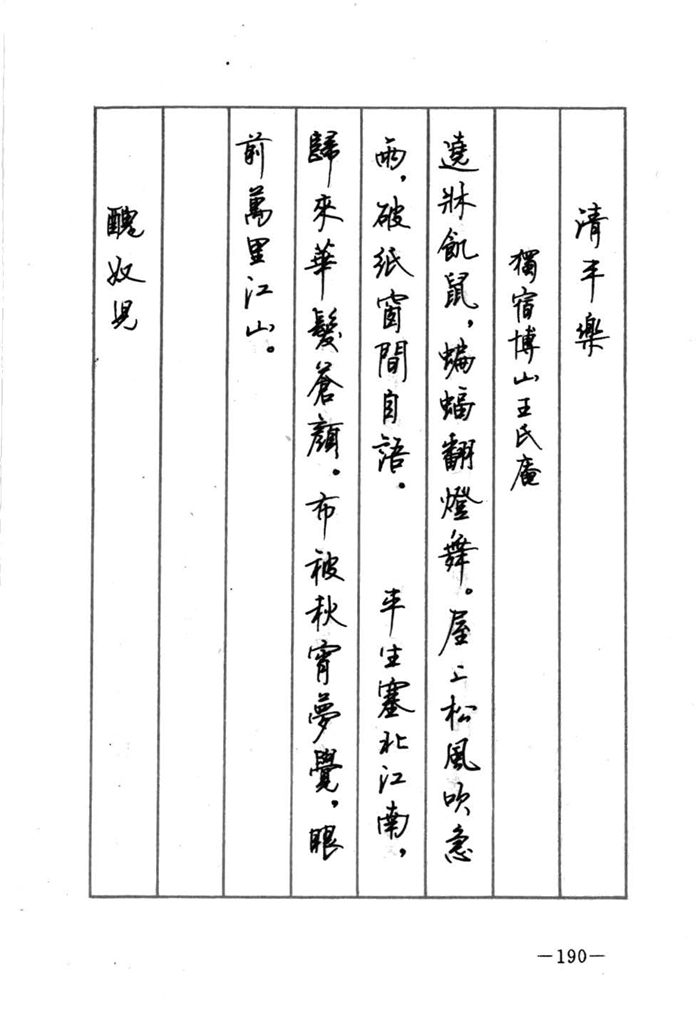 清平樂
獨宿博山王氏庵
遶牀飢鼠，蝙蝠翻燈舞。屋上松風吹急
雨，破紙窗間自語。　平生塞北江南，
歸來華髮蒼顏。布被秋宵夢覺，眼
前萬里江山。
醜奴兒
—190—